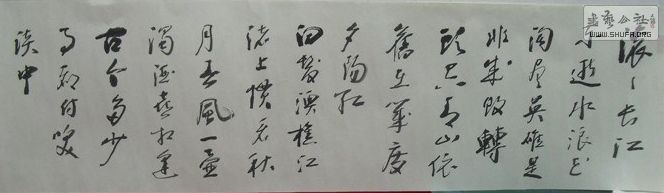 滚々长江
东逝水浪花
淘尽英雄是
非成败转
头空青山依
旧在几度
夕阳红
白发渔樵江
渚上惯看秋
月春风一壶
浊酒喜相逢
古今多少
事都付笑
谈中
书艺公社
WWW.SHUFA.ORG